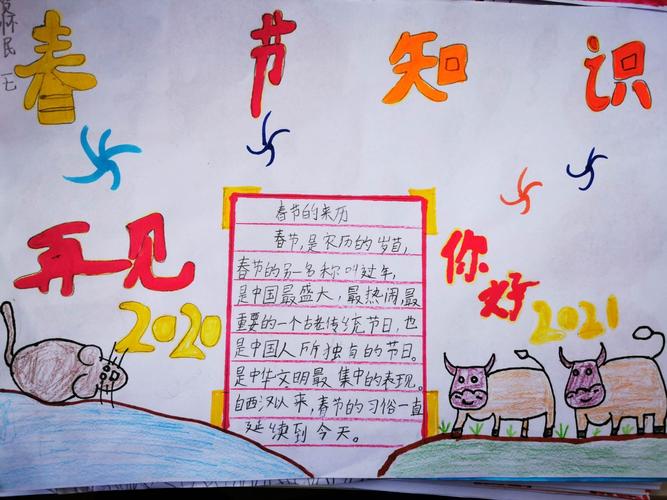 春节知识
再见
2020
你好
2021
春节的来历
春节,是农历的岁首,
春节的另一名称叫过年,
是中国最盛大,最热闹,最
重要的一个古老传统节日,也
是中国人所独有的节日。
是中华文明最集中的表现。
自西汉以来,春节的习俗一直
延续到今天。